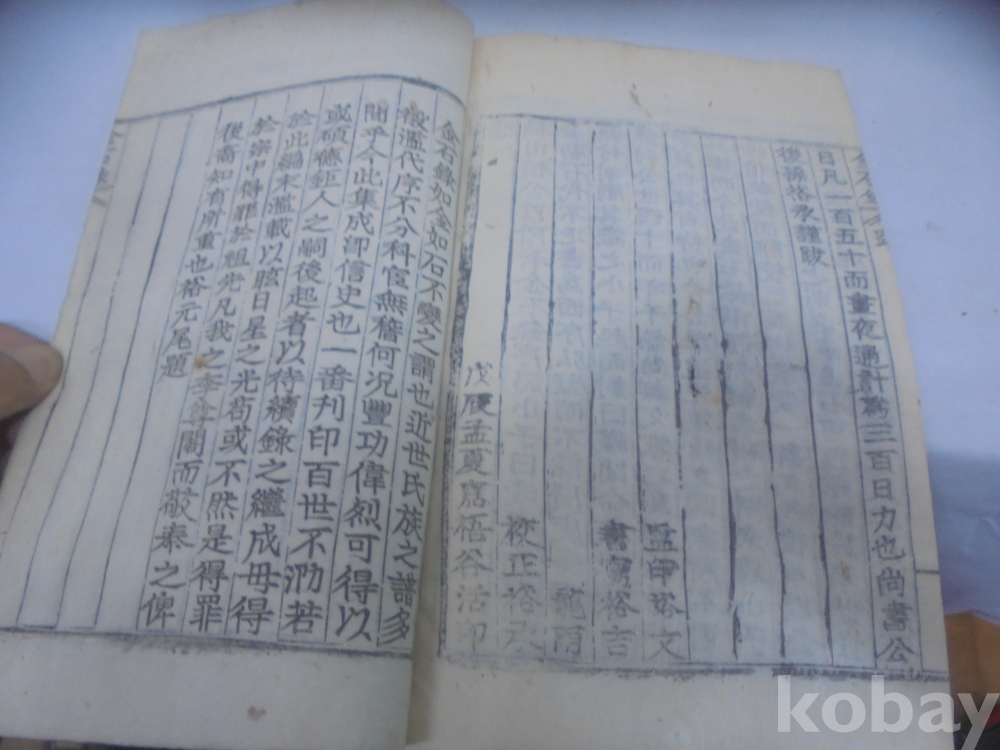 日凡一百五十而晝夜通計爲三百日力也尚書公
後孫裕承謹跋
監印裕文
書寫裕吉
龍雨
校正裕承
孟夏 梧谷活印
金石錄如金如石不變之謂也近世民族之譜多
濫代序不分科宦無稽何況豐功偉烈可得以
聞乎今此集成卽信史也一番刊印百世不泐若
或碩德鉅人之嗣後起者以待續錄之繼成毋得
於此編末濫載以眩日星之光苟或不然是得罪
於宗中得罪於祖先凡我之李尊閣而敬奉之俾
後裔知有所重也裕元尾題
kobay